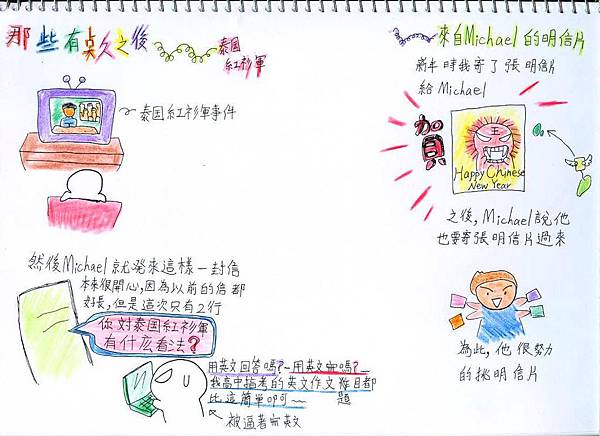 那些有奌久之後
泰国
紅衫軍
泰国紅衫軍事件
然後Michael 就発來這樣一封信
本來很開心,因為以前的信都
好長,但是這次只有2行
你对泰国紅衫軍
有什么看法?
用英文回答嗎?~用英文嗎?
我高中指考的英文作文題目都
比這簡單叩可~~
被逼著英文
來自Michael的明信片
時我寄了張明信片
給Michael
賀
王
Happy Chinese
New Year
之後, Michael說他
也要寄張明信片過來
為此,他很努力
的挑明信片